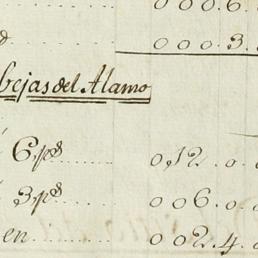 0 0 0. 6.
0 0 0. 3.
bejas del Alamo
6. p.d 0, 12. 0.
3. p.d 0 0 6. 0.
en 0 0 2. 4.